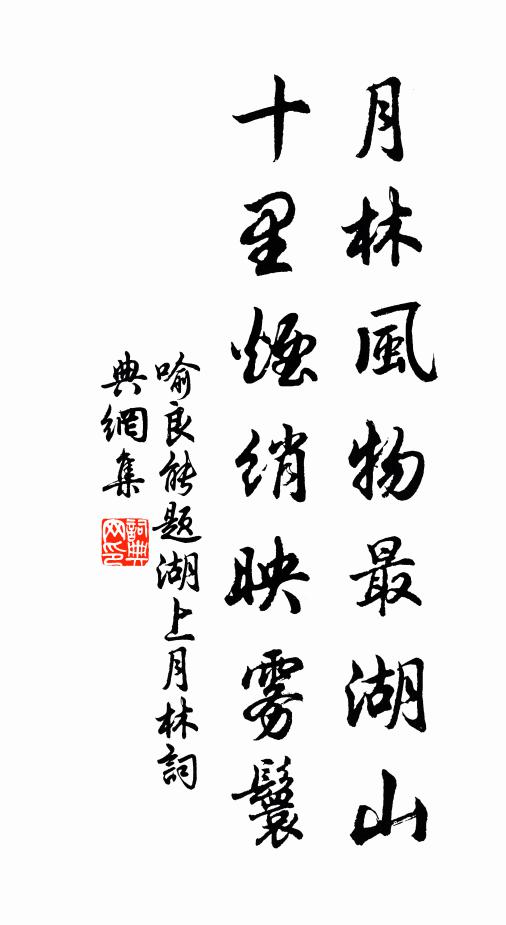 月林風物最湖山
十里煙綃映雾鬟
喻良能題湖上月林詞
典網集
詞典网印